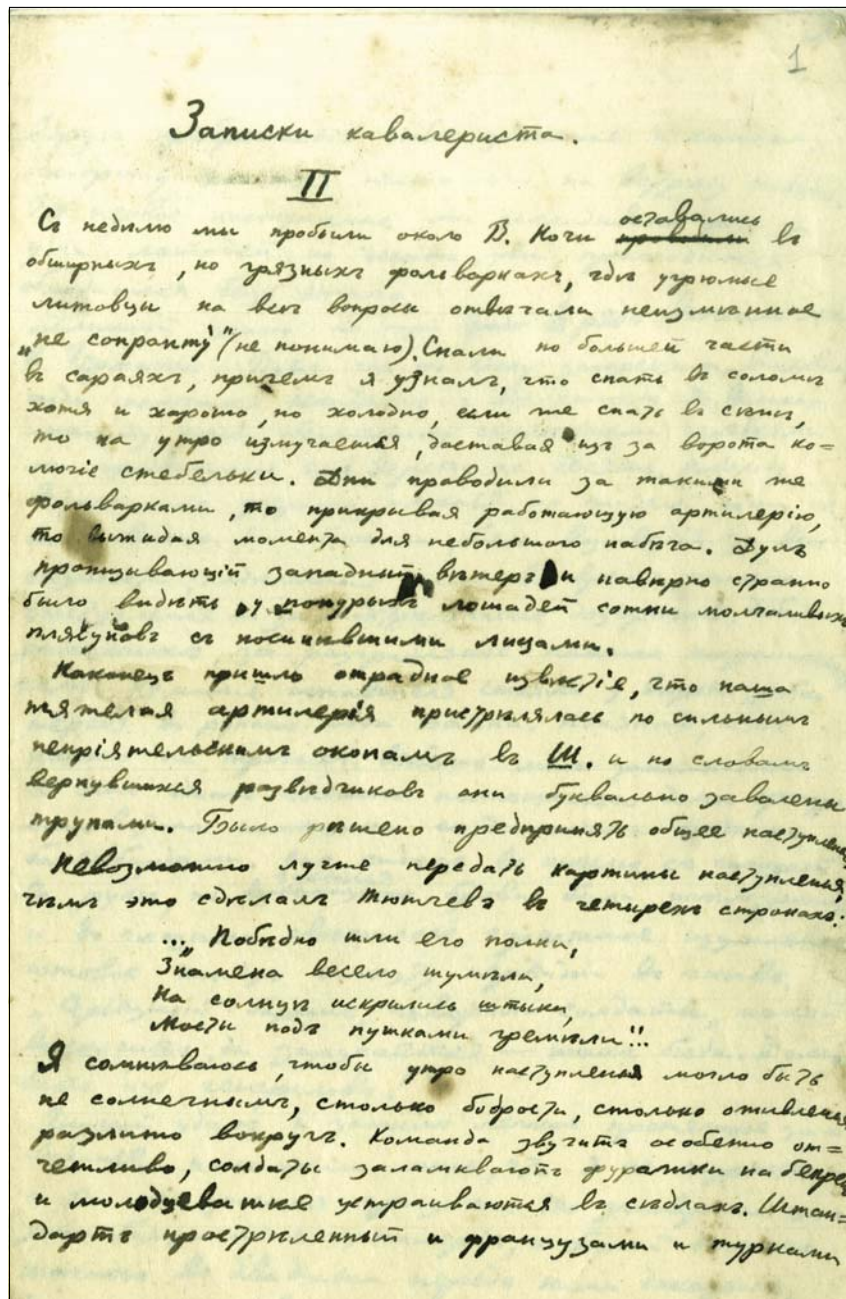 1
Записки кавалериста.
II
Съ недѣлю мы пробыли около В. Ночи оставались въ
обширныхъ, но грязныхъ фольваркахъ, гдѣ угрюмые
литовцы на всѣ вопросы отвѣчали неизмѣнное
„не сопранту" (не понимаю). Спали по большей части
въ сараяхъ, причемъ я узналъ, что спать въ соломѣ
хотя и хорошо, но холодно, если же спать въ сѣнѣ,
то на утро измучаешься, доставая изъ за ворота ко=
лючіе стебельки. Дни проводили за такими же
фольварками, то прикрывая работающую артилерію,
то выжидая момента для небольшого набѣга. Дулъ
пронизывающій западный вѣтеръ и навѣрно странно
было видѣть у понурыхъ лошадей сотни молчаливыхъ
плясуновъ съ посинѣвшими лицами.
Наконецъ пришло отрадное извѣстіе, что наша
тяжелая артилерія пристрѣлялась по сильнымъ
непріятельскимъ окопамъ въ Ш. и по словамъ
вернувшихся развѣдчиковъ они буквально завалены
трупами. Было рѣшено предпринять общее наступленіе
Невозможно лучше передать картины наступленья,
чѣмъ это сдѣлалъ Тютчевъ въ четырехъ строкахъ:
...„Побѣдно шли его полки,
Знамена весело шумѣли,
На солнцѣ искрились штыки,
Мосты подъ пушками гремѣли!!
Я сомнѣваюсь, чтобы утро наступленья могло быть
не солнечнымъ, столько бодрости, столько оживленья
разлито вокругъ. Команда звучитъ особенно от=
четливо, солдаты заламываютъ фуражки на бекрень
и молодцеватѣе устраиваются въ сѣдлахъ. Штан=
дартъ прострѣленный и французами и турками